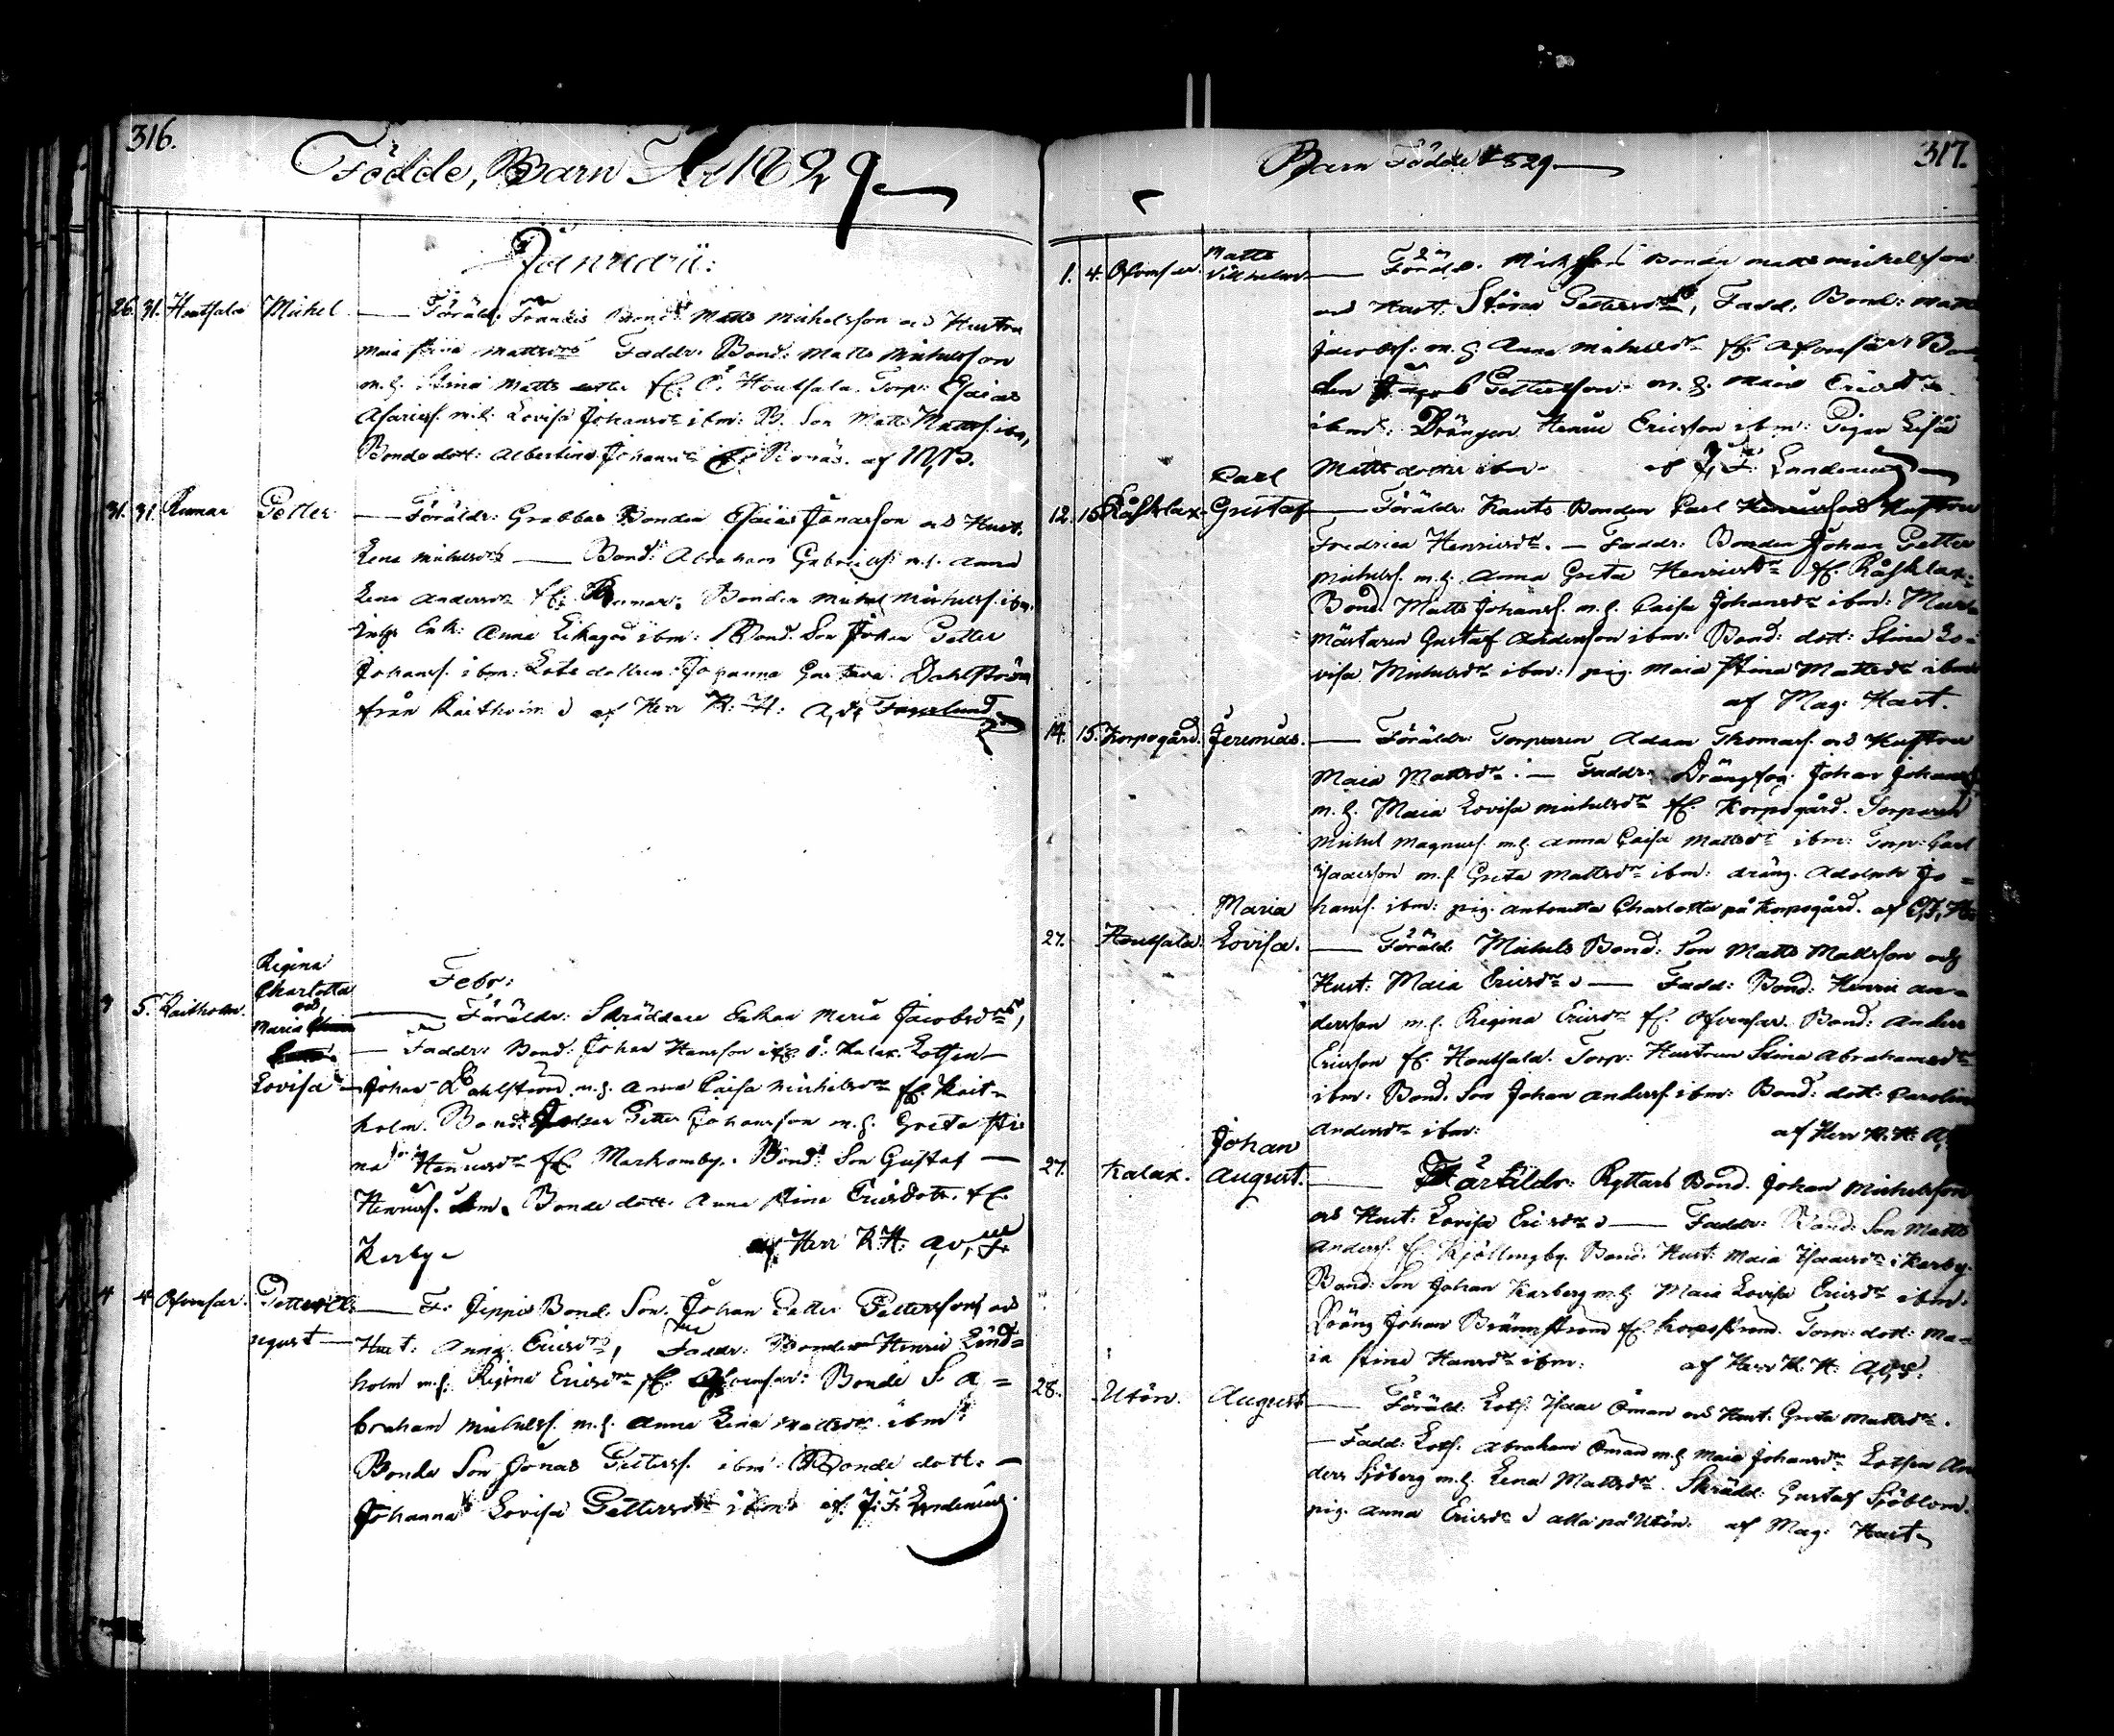 316.
Födde, Barn År 1829
Januarii:
26. 31. Houtsala Michel — Föräld: Frankis Bond: Matts Michelsson och Hustru
Maia Stina Mattsdr Faddr. Bond: Matts Michelsson
m.h. Stina Matts dotter fr. Houtsala. Torp: Esaias
Asariess. m.h. Lovisa Johansdr ibm: B. Son Matts Mattss. ibm,
Bonde dott: Albertina Johansdr Ronäs. af
31. 31. Rumar Petter — Föräldr: Grabbas Bonden Esaias Jonasson och Hust.
Lena Michelsdr — Bond: Abraham Gabrielss: m.h. Anna
Lena Andersdr fr. Rumar. Bonden Michel Michelss. ibm.
Enk: Anna ibm: Bond. Son Johan Petter
Johanss. ibm: Lots dottren Johanna Gustava Dahlström
från Kaitholm af Herr K: H: Fagerlund
Febr:
3 5. Kaitholm. Regina
Charlotta
och
Maria
Lovisa — Föräldr: Skräddare Enkan Maria Jacobsdr,
— Faddr: Bond: Johan Hansson Kalax. Lotsen
Johan Dahlström m.h. Anna Caisa Michelsdr fr. Kait-
holm. Bond: Petter Johansson m.h. Greta Sti
na Henricsdr fr. Markomby. Bond: Son Gustaf —
Henricss. ibm. Bonde dott: Anna Stina Ericsdotr. fr.
Kerby af Herr K.H.
4 4 Ofvensar. Petter
ugust — F: Jippis Bond. Son. Johan Petter Pettersson och
Hust: Anna Ericsdr, Faddr: Bonden Henric Lind=
holm m.h. Regina Ericsdr fr. Ofvensar: Bonde S. A=
braham Michelss. m.h. Anna Lena Mattsdr ibm
Bonde Son Jonas Petterss. ibm Bonde dott. —
Johanna Lovisa Pettersdr ibm af J: F: Landenius
317.
Barn Födde 1829
1. 4. Ofvensar. Matts
Vilhelm — Föräld. Bonden Matts Michelsson
och Hust. Stina Pettersdr, Fadd. Bond: Matts
Jacobss: m.h. Anna Michelsdr fr. Ofvensar Bon
den Jacob Pettersson m.h. Maia Ericsdr
ibm: Drängen Henric Ericsson ibm: Pigan Lisa
Matts dotter ibm. af J, F: Landenius
12. 15. Råfsklax. Carl
Gustaf — Föräldr: Knuts Bonden Carl Henricss och Hustru
Fredrica Henricsdr. — Faddr: Bonden Johan Petter
Michelss. m.h. Anna Greta Henricsdr fr. Råfsklax.
Bond: Matts Johanss. m.h. Caisa Johansdr ibm: Mur
mästaren Gustaf Andersson ibm: Bond: dott: Stina Lo=
visa Michelsdr ibm: pig. Maia Stina Mattsdr ibm
af Mag: Hast.
14. 15. Korpogård. Jeremias. — Föräldr: Torparen Adam Thomass. och Hustru
Maia Mattsdr: — Faddr: Drängfog. Johan Johanss
m.h. Maia Lovisa Michelsdr fr. Korpogård. Torparen
Michel Magnuss. m.h. Anna Caisa Mattsdr ibm: Torp: Carl
Isaacsson m.h. Greta Mattsdr ibm: dräng. Adolph Jo=
hanss. ibm: pig. Antonetta Charlotta på Korpogård. af
27. Houtsala Maria
Lovisa. — Föräld: Michels Bond: Son Matts Mattsson och
Hust: Maia Ericsdr — Fadd: Bond: Henric An=
dersson m.h. Regina Ericsdr fr. Ofvensar. Bond: Anders
Ericsson fr. Houtsala. Torp: Hustrun Stina Abrahamsdr
ibm. Bond. Son Johan Anderss. ibm: Bond: dott: Carolina
Andersdr ibm: af Herr K: H: A.
27. Kalax. Johan
August. — Föräldr: Ryttars Bond. Johan Michelsson
och Hust: Lovisa Ericsdr — Faddr: Bond: Son Matts
Anderss. fr. Kjöllingby. Bond: Hust: Maia Isaacsdr i Kerby.
Bond: Son Johan Karberg m.h. Maia Lovisa Ericsdr ibm.
Dräng Johan Brännström fr. Korpström. Torp: dott: Ma=
ia Stina Hansdr ibm: af Herr K: H:
28. Utön. August — Föräld: Lots. Isaac Öman och Hust: Greta Mattsdr.
— Fadd: Lots. Abraham Öman m.h. Maia Johansdr Lotsen An
ders Sjöberg m.h. Lena Mattsdr. Skrädd: Gustaf Sjöblom.
pig. Anna Ericsdr alla på Utön: af Mag: Hast